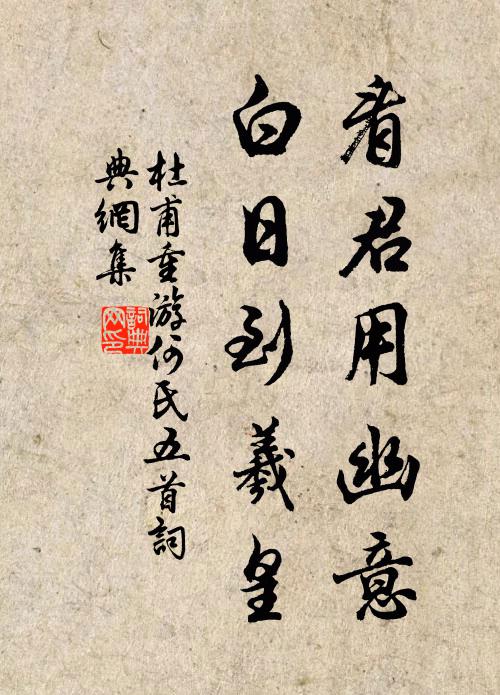 看君用幽意
白日到羲皇
杜甫重游何氏五首詞
典網集
詞典
网印